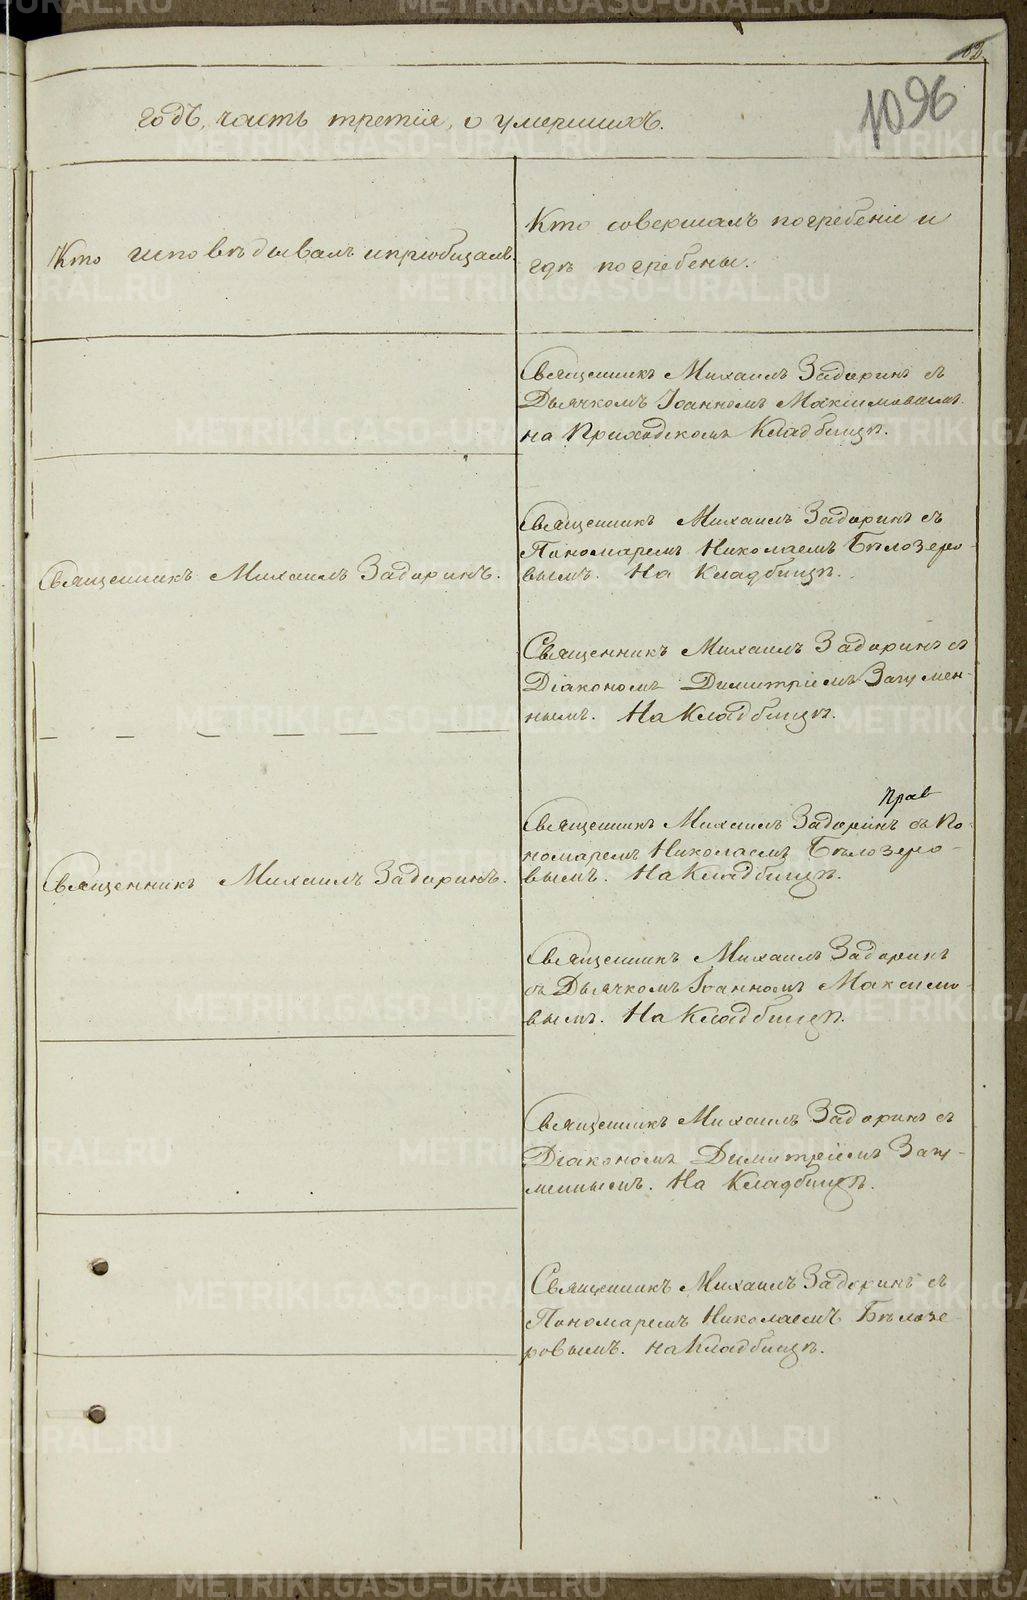 62.
1096
годъ, часть третія, о умершихъ.
Кто исповѣдывалъ и пріобщалъ.
Кто совершалъ погребеніе и
гдѣ погребены.
Священникъ Михаилъ Задоринъ съ
Дьячкомъ Іоанномъ Максимовымъ.
на Приходскомъ Кладбищѣ.
Священникъ Михаилъ Задоринъ.
Священникъ Михаилъ Задоринъ съ
Пономаремъ Николаемъ Бѣлозеро-
вымъ. На Кладбищѣ.
Священникъ Михаилъ Задоринъ съ
Діакономъ Димитріемъ Загумен-
нымъ. На Кладбищѣ.
Прав
Священникъ Михаилъ Задоринъ.
Священникъ Михаилъ Задоринъ съ По-
номаремъ Николаемъ Бѣлозеро-
вымъ. На Кладбищѣ.
Священникъ Михаилъ Задоринъ
съ Дьячкомъ Іоанномъ Максимо-
вымъ. На Кладбищѣ.
Священникъ Михаилъ Задоринъ съ
Діакономъ Димитріемъ Загу-
меннымъ. На Кладбищѣ.
Священникъ Михаилъ Задоринъ съ
Пономаремъ Николаемъ Бѣлозе-
ровымъ. на Кладбищѣ.
METRIKI.GASO-URAL.RU